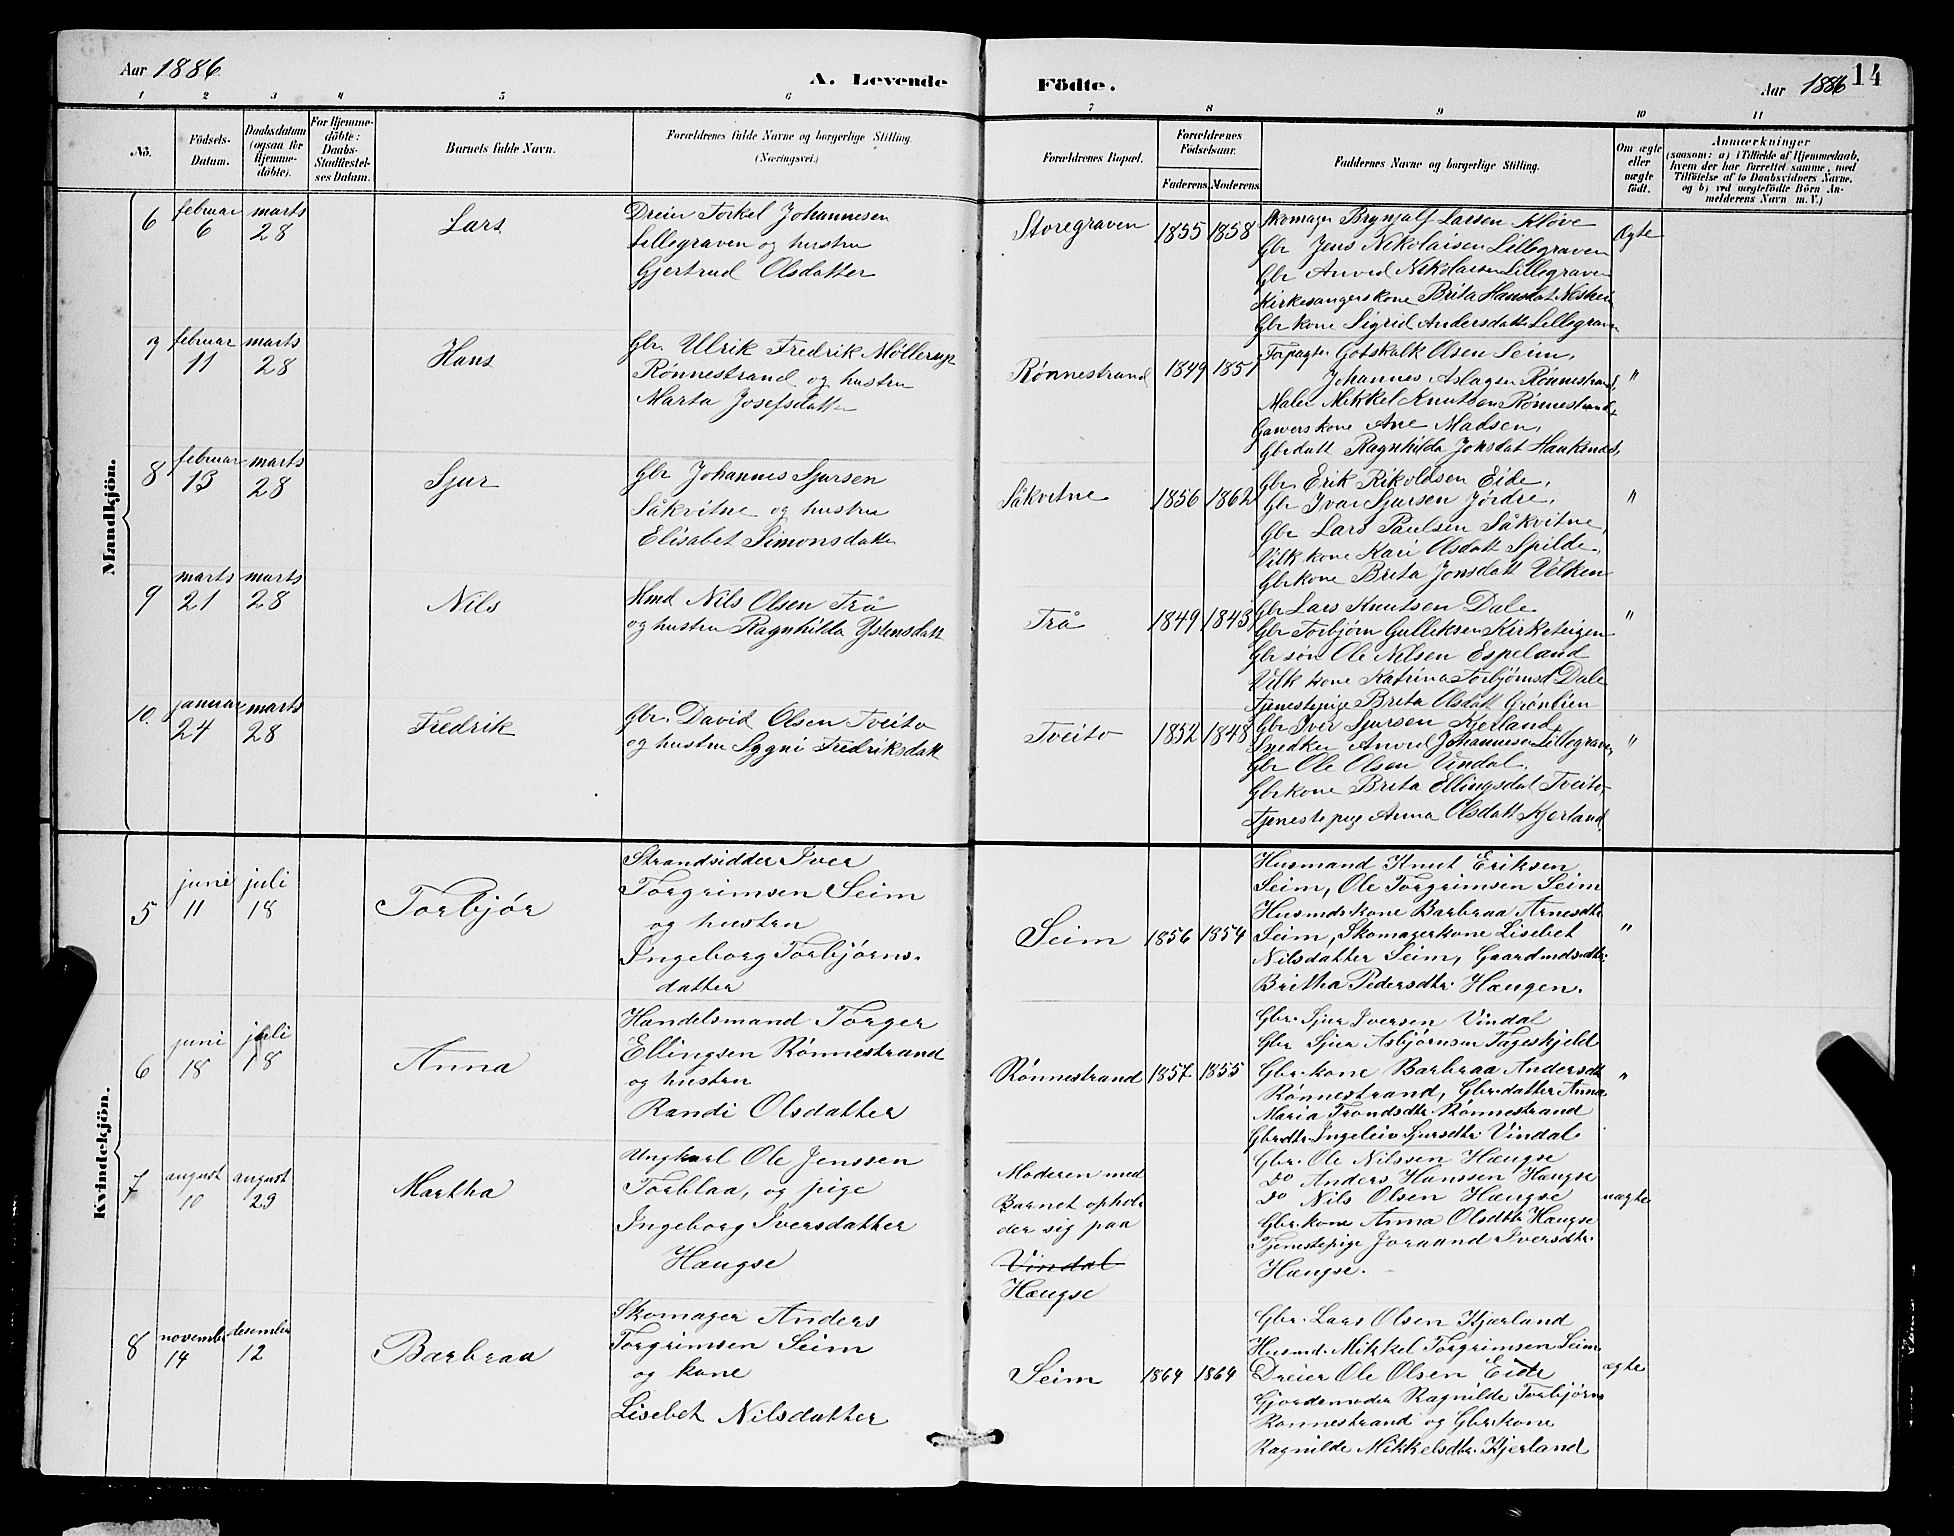 Aar 1886.
A. Levende
Födte.
Aar 1886
14
1 2 3 4 5 6 7 8 9 10 11
No.
Födsels-
Datum.
Daabsdatum
(ogsaa for
Hjemme-
döbte).
For Hjemme-
döbte:
Daabs-
Stadfæstel-
ses Datum.
Barnets fulde Navn.
Forældrenes fulde Navne og borgerlige Stilling.
(Næringsvei.)
Forældrenes Bopæl.
Forældrenes
Födselsaar.
Faderens. Moderens.
Faddernes Navne og borgerlige Stilling.
Om ægte
eller
uægte
födt.
Anmærkninger
(saasom: a) i Tilfælde af Hjemmedaab,
hvem der har forrettet samme, med
Tilföielse af to Daabsvidners Navne,
og b) ved uægtefödte Börn An-
melderens Navn m. V.)
Mandkjön.
6
februar
6
marts
28
Lars
Dreier Torkel Johannesen
Lillegraven og hustru
Gjertrud Olsdatter
Storegraven
1855 1858
Skomager Brynjulf Larsen Kløve
Gbr Jens Nikolaisen Lillegraven
Gbr Anved Nikolaisen Lillegraven
Kirkesangerskone Brita Hansdat Neshei
Gbr kone Sigrid Andersdatt Lillegraven
Ægte
februar
11
marts
28
Hans
Gbr. Ulrik Fredrik Möllerup
Rønnestrand og hustru
Marta Josefsdatter
Rønnestrand
1849 1851
Forpagter Gotskalk Olsen Seim,
Johannes Aslagsen Rønnestrand,
Maler Mikkel Knutsen Rønnestrand,
Garverskone Ane Madsen,
Gbr datt Ragnhilda Jonsdat Haukenæs,
"
8
februar
13
marts
28
Sjur
Gbr Johannes Sjursen
Såkvitne og hustru
Elisabet Simonsdatter
Såkvitne
1856 1862
Gbr. Erik Rikoldsen Eide,
Gbr Ivar Sjursen Jørdre,
Gbr Lars Paulsen Såkvitne,
Vilk kone Kari Olsdatt Spilde,
Gbr kone Brita Jonsdatt Velken
"
9
marts
21
marts
28
Nils
Hmd Nils Olsen Trå
og hustru Ragnhilda Ystensdatt
Trå
1849 1843
Gbr Lars Knutsen Dale
Gbr Torbjørn Gulleksen Kirketeigen
Gbr søn Ole Nelsen Espeland
Vilk kone Katrina Torbjörnsd Dale
Tjenestepige Brita Olsdatt Grönlien
"
10.
januar
24
marts
28
Fredrik
Gbr. David Olsen Tveito
og hustru Sygni Fredriksdatt
Tveito
1852 1848
Gbr Iver Sjursen Kjerland
Snedker Anved Johannesen Lillegraven
Gbr Ole Olsen Vindal,
Gbr kone Brita Ellingsdat Tveito,
Tjenestepige Anna Olsdatt Kjerland,
"
Kvindekjön.
5
juni
11
juli
18
Torbjør
Strandsidder Iver
Torgrimsen Seim
og hustru
Ingeborg Torbjørns-
datter
Seim
1856 1854
Husmand Knut Eriksen
Seim, Ole Torgrimsen Seim
Husmds kone Barbraa Arnesdtr
Seim, Skomagerkone Lisebet
Nilsdatter Seim, Gaardmdsdtr.
Britha Pedersdtr. Haugen.
"
6
juni
18
juli
18
Anna
Handelsmand Torger
Ellingsen Rønnestrand
og hustru
Randi Olsdatter
Rønnestrand
1857 1855
Gbr. Sjur Iversen Vindal
Gbr Sjur Asbjørnsen Fageskjeld
Gbr.kone Barbraa Andersdtr
Rønnestrand, Gbr.datter Anna
Maria Trondsdtr. Rønnestrand
Gbrdtr. Ingeleiv Sjursdtr. Vindal
"
7
august
10
august
29
Martha
Ungkarl Ole Jenssen
Torblaa, og pige
Ingeborg Iversdatter
Haugse
Moderen med
Barnet ophol-
der sig paa
Vindal
Haugse
Gbr. Ole Nilssen Haugse
Do Anders Hanssen Haugse
Do Nils Olsen Haugse
Gbr.kone Anna Olsdtr Haugse
Tjenestepige Joraand Iversdtr.
Haugse.
uægte
8
november
14
desember
12
Barbraa
Skomager Anders
Torgrimsen Seim
og kone
Lisebet Nilsdatter
Seim
1864 1864
Gbr. Lars Olsen Kjerland
Husmd. Mikkel Torgrimsen Seim
Dreier Ole Olsen Eide
Gjordemoder Ragnilde Torbjørns
Rønnestrand og Gbr.kone
Ragnilde Mikkelsdtr. Kjerland
ægte